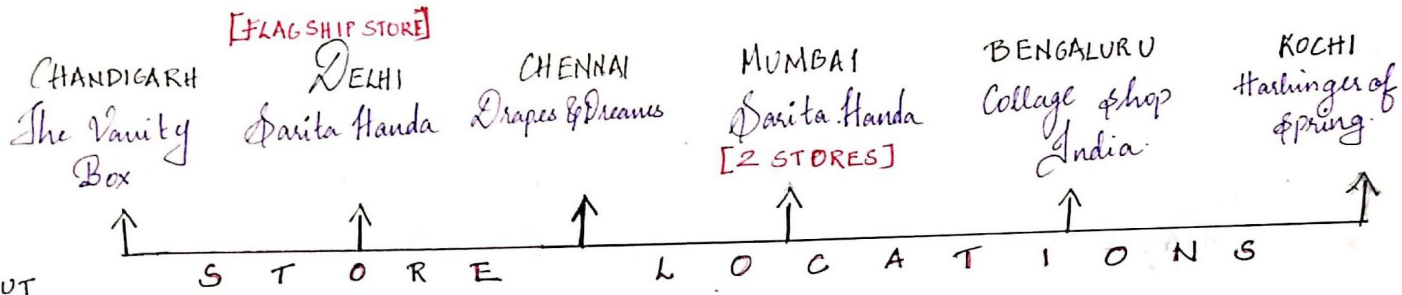 [FLAGSHIP STORE]
CHANDIGARH
The Vanity
Box
DELHI
Sarita Handa
CHENNAI
Drapes & Dreams
MUMBAI
Sarita Handa
[2 STORES]
BENGALURU
Collage Shop
India
KOCHI
Harbinger of
Spring.
STORE LOCATIONS
UT